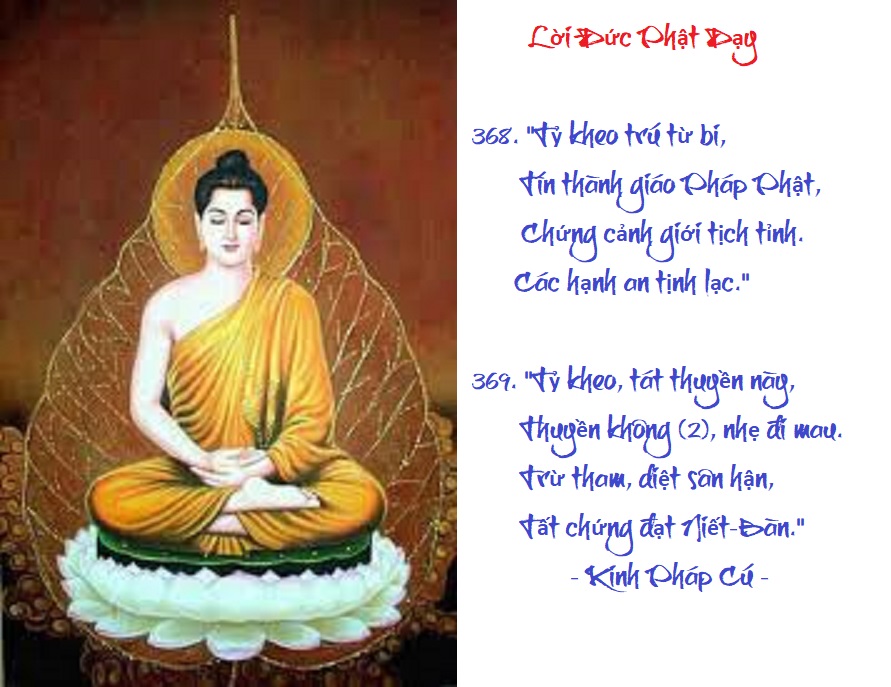 Lời Đức Phật Dạy
368. "Tỷ kheo trú từ bi,
Tín thành giáo Pháp Phật,
Chứng cảnh giới tịch tỉnh.
Các hạnh an tịnh lạc."
369. "Tỷ kheo, tát thuyền này,
Thuyền không (2), nhẹ đi mau.
Trừ tham, diệt sân hận,
Tất chứng đạt Niết-Bàn."
- Kinh Pháp Cú -